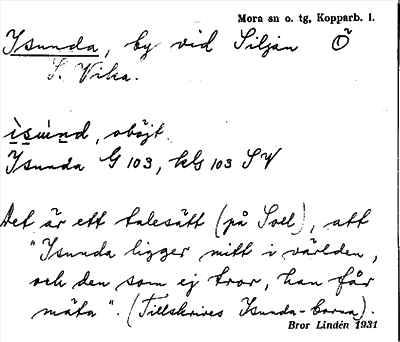 Mora sn o. tg, Kopparb. l.
Isunda, by vid Siljan Ö
S. Vika.
ìsúnd, oböjt.
Isunda G 103, kls 103 SV
Det är ett talesätt (på Soll), att
"Isunda ligger mitt i världen,
och den som ej tror, han får
mäta". (Tillskrives Isunda-borna).
Bror Lindén 1931